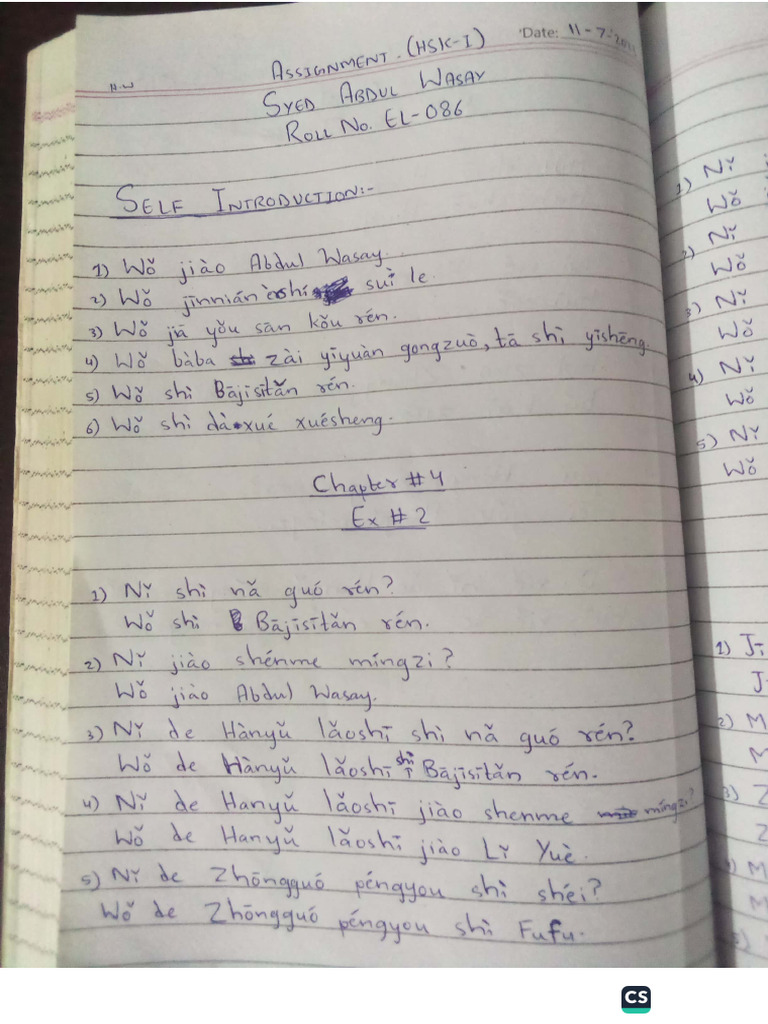 H.W
ASSIGNMENT. (HSK-I)
Date: 11-7-
SYED ABDUL WASAY
ROLL NO. EL-086
SELF INTRODUCTION:-
1) Wǒ jiào Abdul Wasay.
2) Wǒ jīnnián èrshí suì le.
3) Wǒ jiā yǒu sān kǒu rén.
4) Wǒ bàba zài yīyuàn gongzuò, tā shì yīshēng.
5) Wǒ shì Bājīsītǎn rén.
6) Wǒ shì dàxué xuésheng.
Chapter #4
Ex # 2
1) Nǐ shì nǎ guó rén?
Wǒ shì Bājīsītǎn rén.
2) Nǐ jiào shénme míngzi?
Wǒ jiào Abdul Wasay.
3) Nǐ de Hànyǔ lǎoshī shì nǎ guó rén?
Wǒ de Hànyǔ lǎoshī shì Bājīsītǎn rén.
4) Nǐ de Hanyǔ lǎoshī jiào shenme míngzi?
Wǒ de Hanyǔ lǎoshī jiào Lǐ Yuè.
5) Nǐ de Zhōngguó péngyou shì shéi?
Wǒ de Zhōngguó péngyou shì Fufu.
1) Nǐ
Wǒ
2) Nǐ
Wǒ
3) Nǐ
Wǒ
4) Nǐ
Wǒ
5) Nǐ
Wǒ
CS